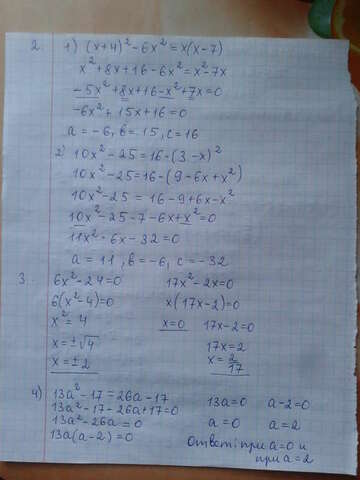 2. 1) (x+4)²-6x²=x(x-7)
x²+8x+16-6x²=x²-7x
-5x²+8x+16-x²+7x=0
-6x²+15x+16=0
a=-6, b=15, c=16
2) 10x²-25=16-(3-x)²
10x²-25=16-(9-6x+x²)
10x²-25=16-9+6x-x²
10x²-25-7-6x+x²=0
11x²-6x-32=0
a=11, b=-6, c=-32
3. 6x²-24=0
6(x²-4)=0
x²=4
x=±√4
x=±2
17x²-2x=0
x(17x-2)=0
x=0 17x-2=0
17x=2
x=2/17
4) 13a²-17=26a-17
13a²-17-26a+17=0
13a²-26a=0
13a(a-2)=0
13a=0 a-2=0
a=0 a=2
Ответ: при a=0 и
при a=2